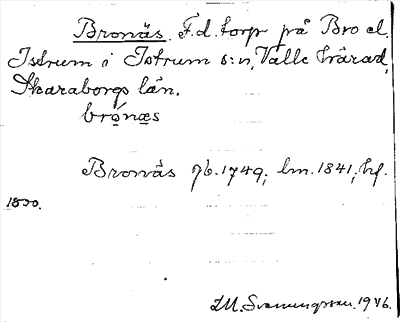 Bronäs. F.d. torp på Bro el.
Istrum i Istrum s:n, Valle härad,
Skaraborgs län.
brónæs
Bronäs 1749, lm. 1841, hf.
1800.
1946.